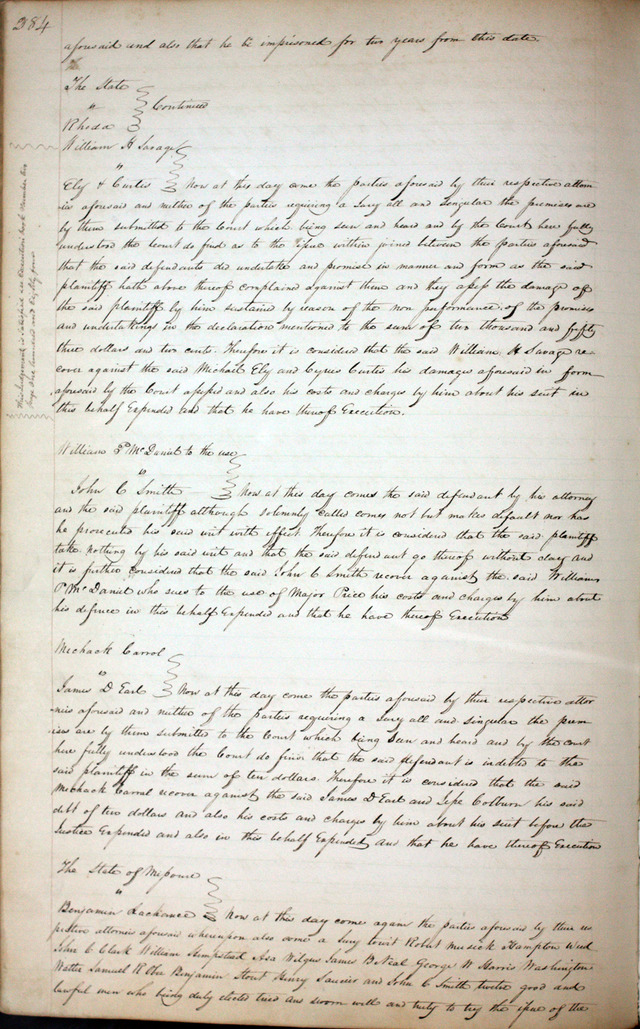 384
aforesaid and also that he be imprisoned for two years from this date
The State
"
Rhoda
Continued
William H Savage
"
Ely & Curtis Now at this day come the parties aforesaid by their respective attor
nies aforesaid and neither of the parties requiring a Jury all and Singular the premises are
by them submitted to the Court which being seen and heard and by the Court here fully
understood the Court do find as to the Issue within joined between the parties aforesaid
that the said defendants did undertake and promise in manner and form as the said
plaintiff hath above thereof complained against them and they assess the damage of
the said plaintiff by him sustained by reason of the non performance of the promises
and undertakings in the declaration mentioned to the sum of two thousand and fifty
three dollars and two cents. Therefore it is considered that the said William H Savage re
cover against the said Michael Ely and Cyrus Curtis his damages aforesaid in form
aforesaid by the Court assessed and also his costs and charges by him about his suit in
this behalf Expended and that he have thereof Execution.
This Judgement is satisfied see Execution book Number two
page one hundred and Eighty four
William P McDaniel to the use
vs
John C Smith Now at this day comes the said defendant by his attorney
and the said plaintiff although solemnly called comes not but makes default nor has
he prosecuted his said writ with effect Therefore it is considered that the said plaintiff
take nothing by his said writ and that the said defendant go thereof without day and
it is further considered that the said John C Smith recover against the said William
P McDaniel who sues to the use of Major Price his costs and charges by him about
his defence in this behalf Expended and that he have thereof Execution
Mechack Carrol
vs
James D Earl Now at this day come the parties aforesaid by their respective attor
nies aforesaid and neither of the parties requiring a Jury all and singular the prem
ises are by them submitted to the Court which being Seen and heard and by the court
here fully understood the Court do find that the said defendant is indebted to the
said plaintiff in the sum of ten dollars. Therefore it is considered that the said
Mechack Carrol recover against the said James D Earl and Jesse Colburn his said
debt of ten dollars and also his costs and charges by him about his suit before the
Justice Expended and also in this behalf Expended and that he have thereof Execution
The State of Missouri
"
Benjamin Lachance Now at this day come again the parties aforesaid by their res
pective attornies aforesaid whereupon also come a Jury towit Robert Musick Hampton
John C Clark William Hempstead Asa Wilgus James B Neal George W Harris Washington
Watter Samuel R Ober Benjamin Stout Henry Saucier and John C Smith twelve good and
lawful men who being duly elected tried and sworn well and truly to try the issue of the